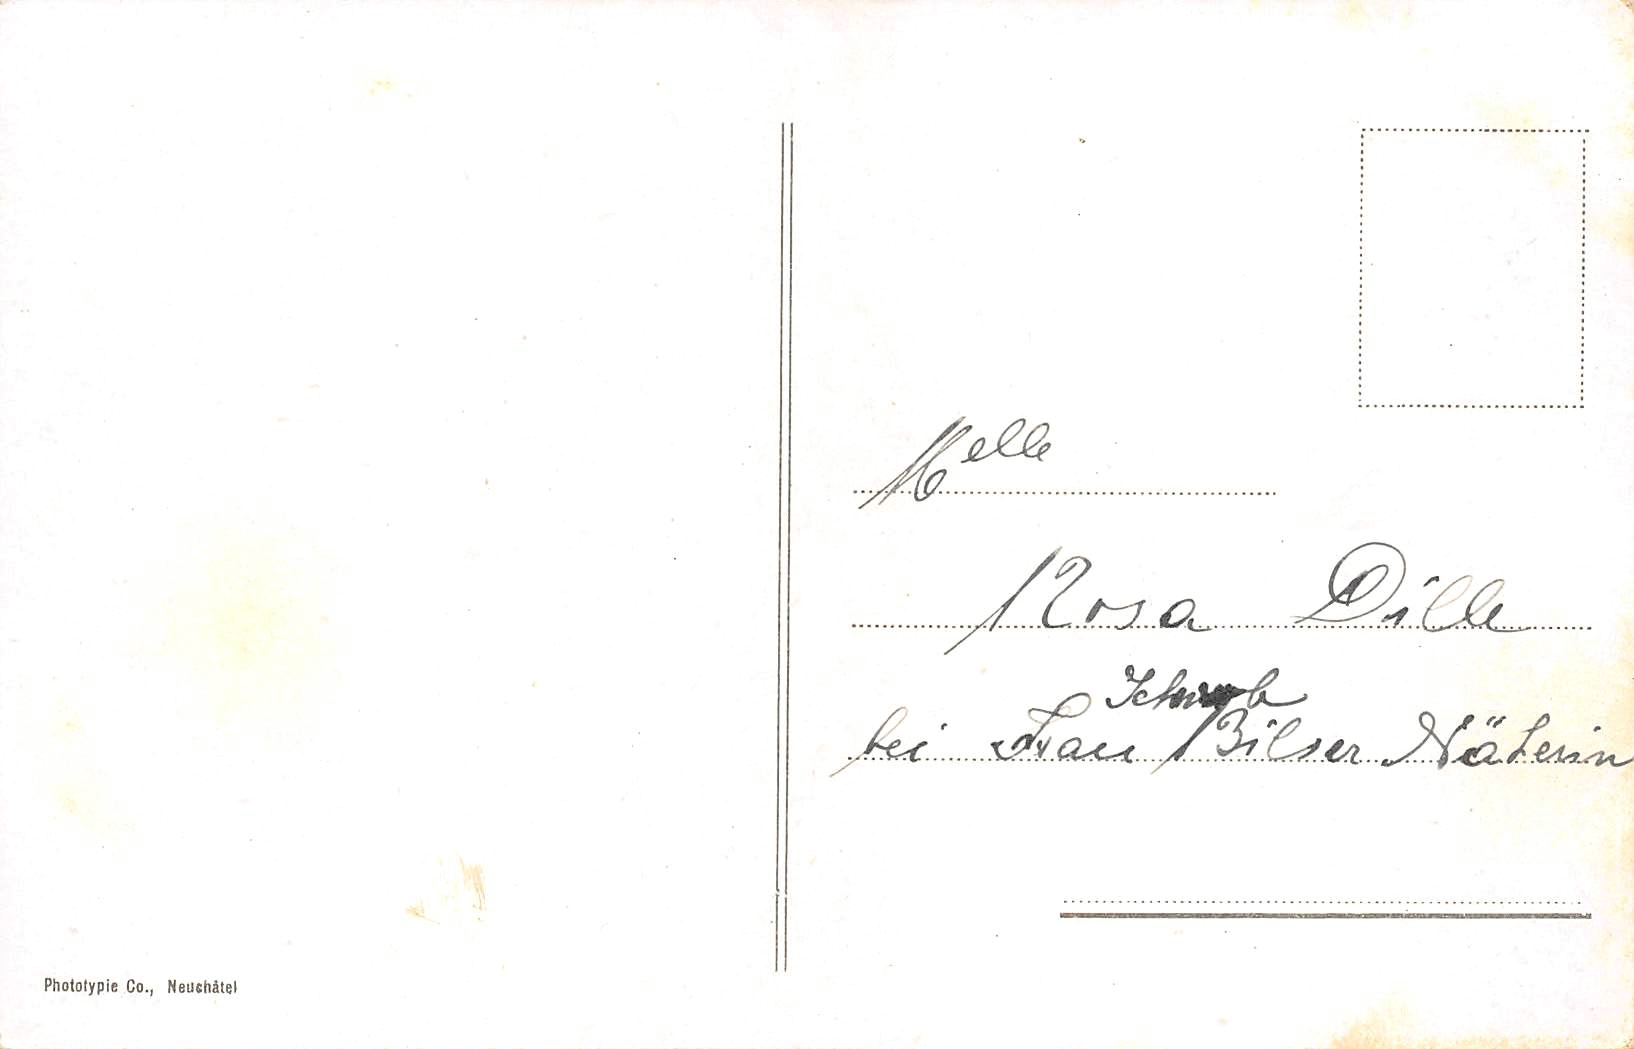 Melle
Rosa Dille
Schwob
bei Frau Bilser Näterin
Phototypie Co., Neuchâtel